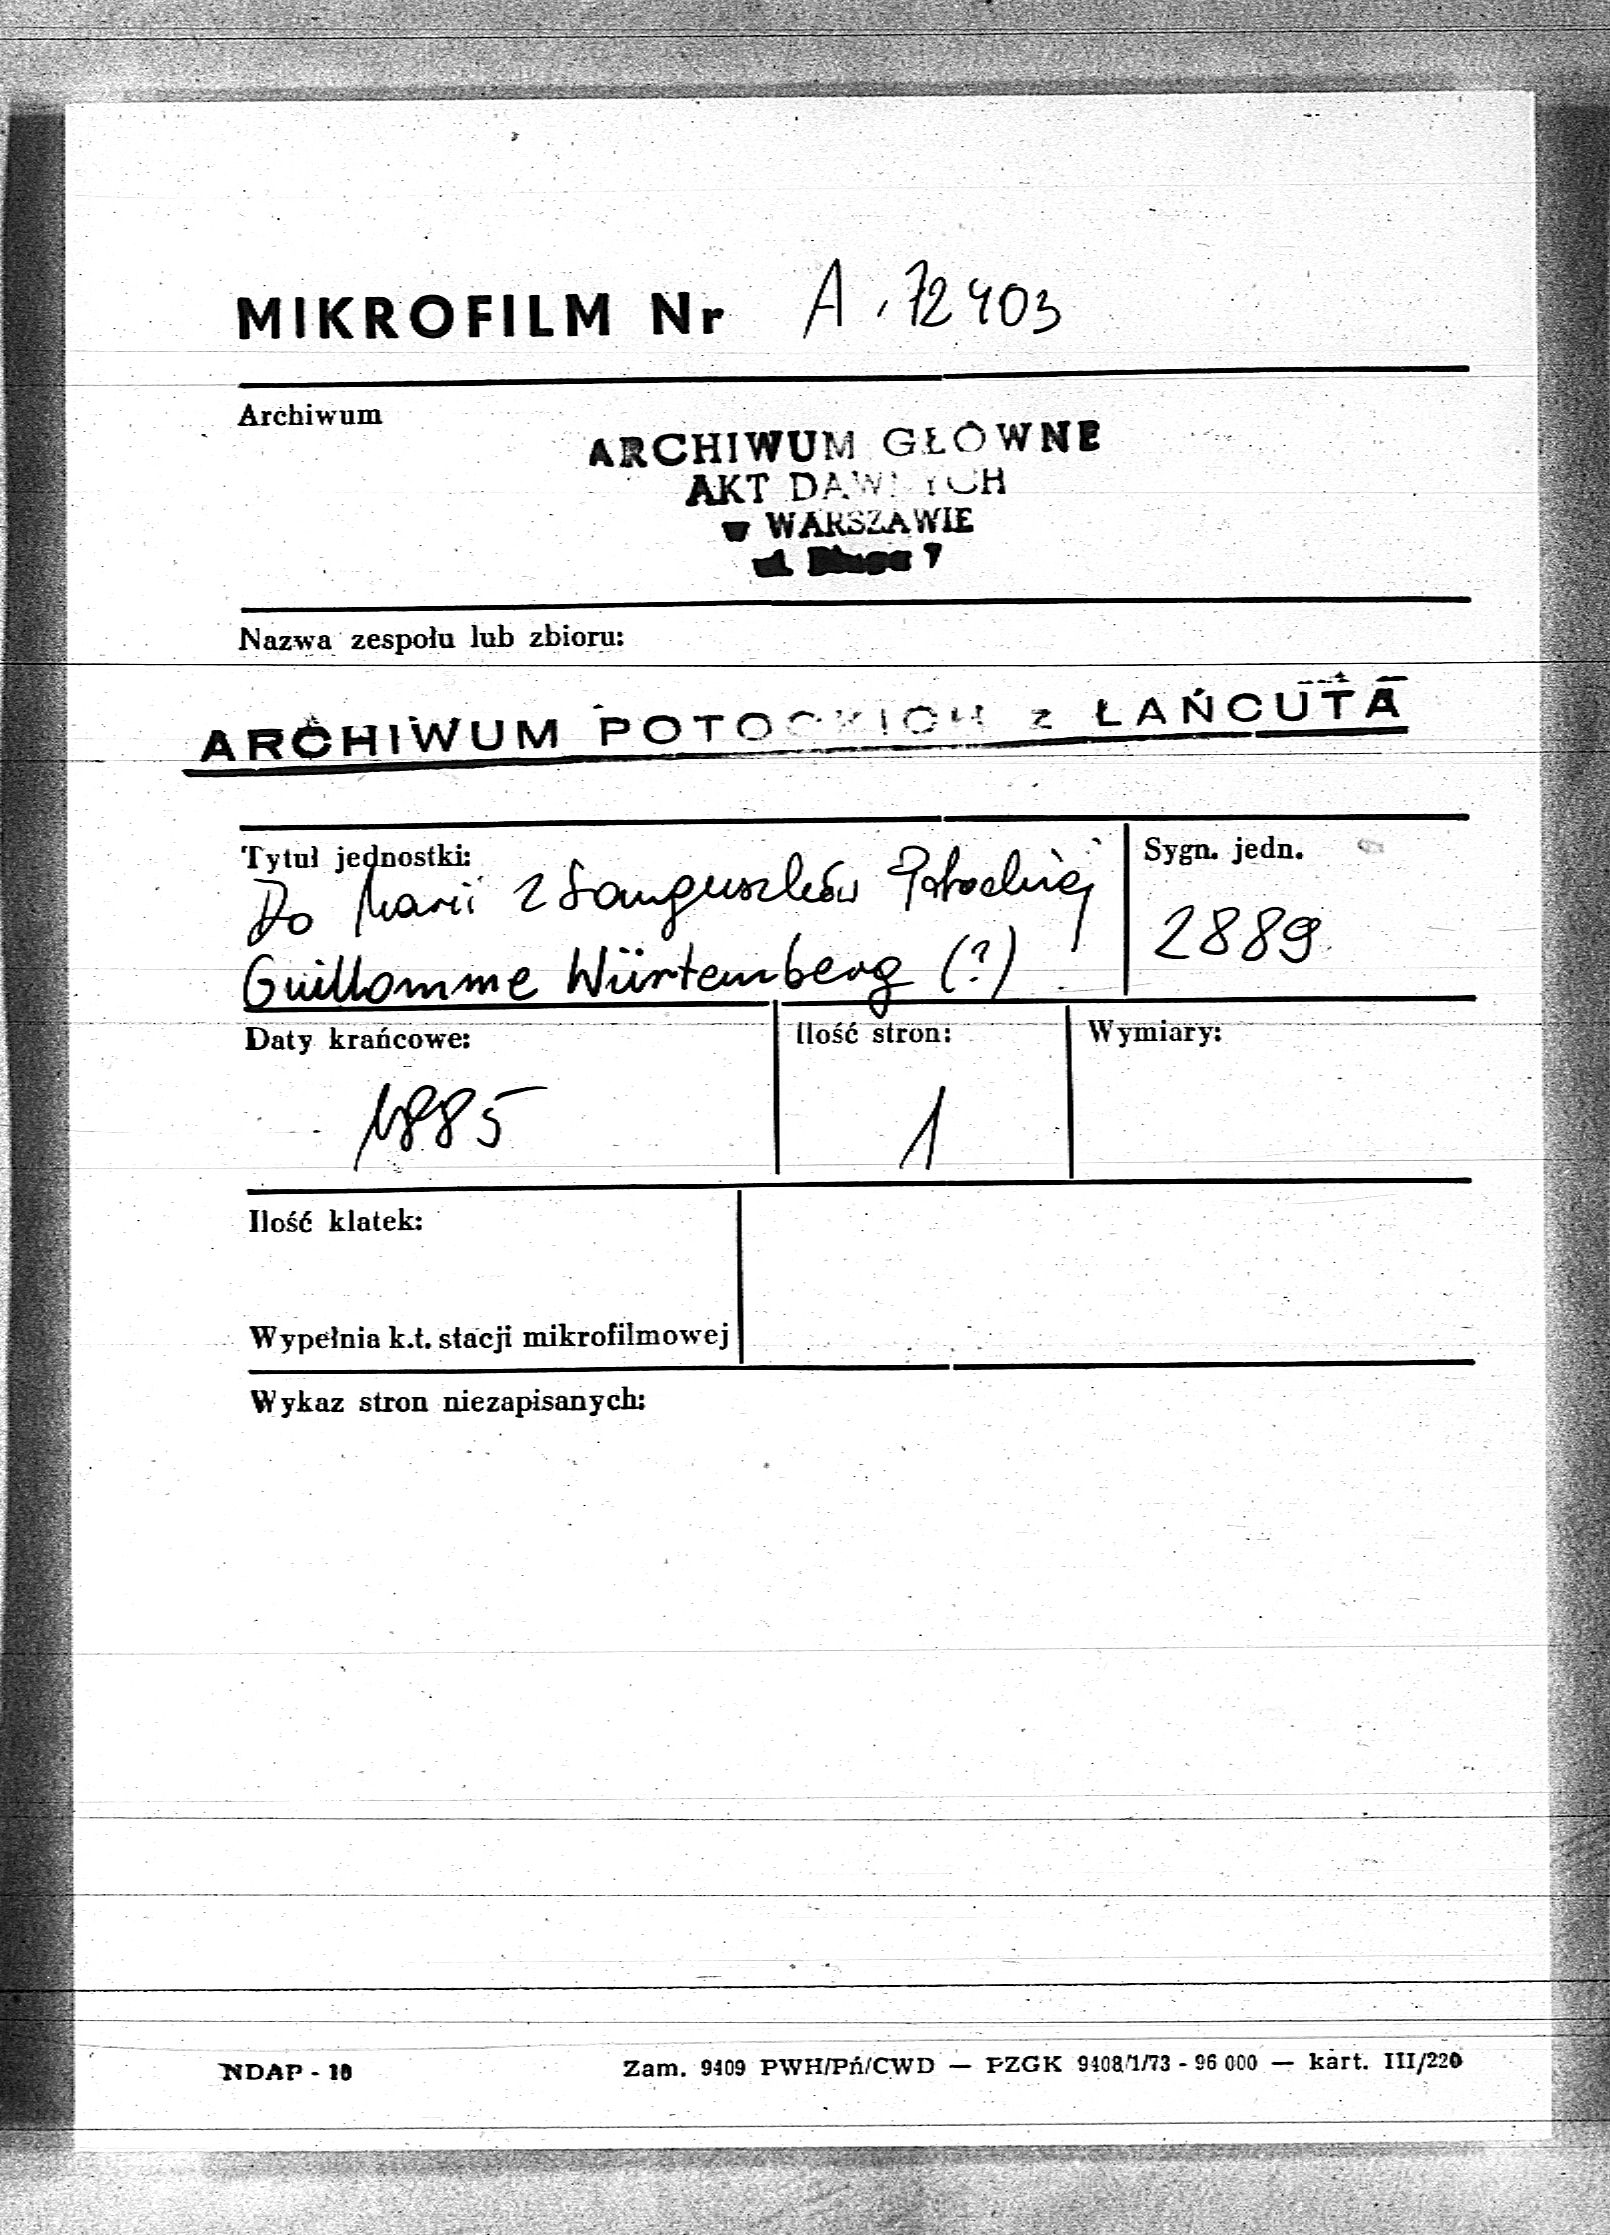 MIKROFILM Nr A. 72403
Archiwum
ARCHIWUM GŁÓWNE
AKT DAWNYCH
w WARSZAWIE
ul. Długa 7
Nazwa zespołu lub zbioru:
ARCHIWUM POTOCKICH z ŁAŃCUTA
Tytuł jednostki:
Do Marii z Sanguszków Potockiej
Guillomme Würtemberg (?)
Sygn. jedn.
2889
Daty krańcowe:
1885
Ilość stron:
1
Wymiary:
Ilość klatek:
Wypełnia k.t. stacji mikrofilmowej
Wykaz stron niezapisanych:
NDAP - 18
Zam. 9409 PWH/Pń/CWD — PZGK 9408/1/73 - 96 000 — kart. III/220